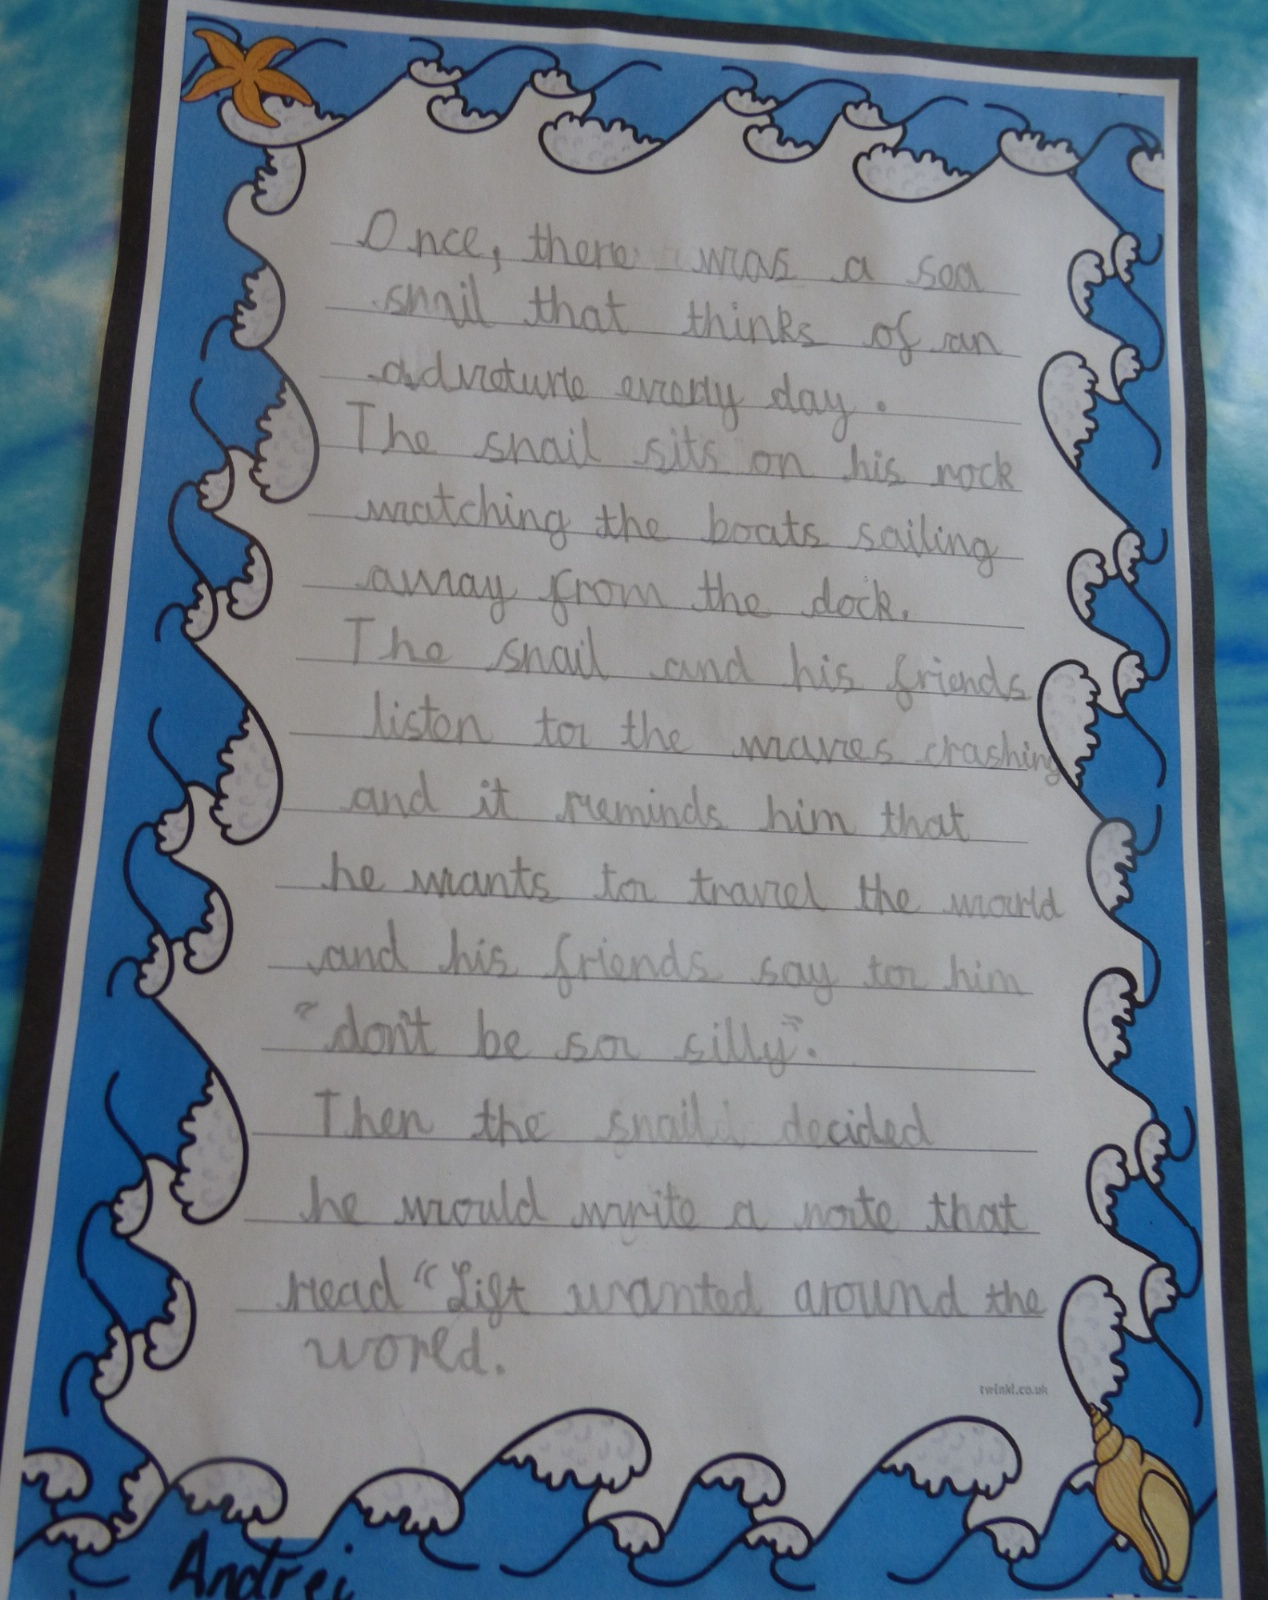 Once, there was a sea
snail that thinks of an
advnture every day.
The snail sits on his rock
watching the boats sailing
away from the dock.
The snail and his friends
listen to the waves crashing
and it reminds him that
he wants to travel the world
and his friends say to him
"don't be so silly".
Then the snail decided
he would write a note that
read "Lift wanted around the
world.
twinkl.co.uk
Andrei